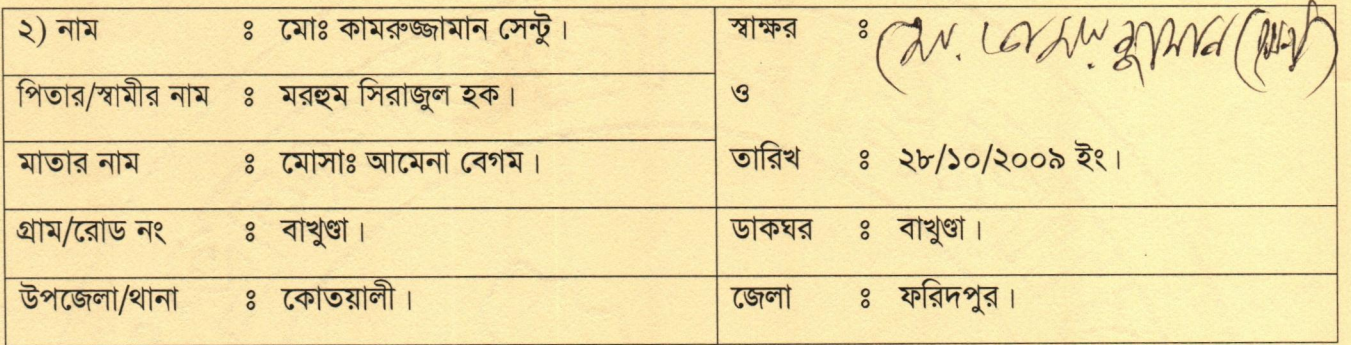 ২) নাম ঃ মোঃ কামরুজ্জামান সেন্টু। স্বাক্ষর ঃ
পিতার/স্বামীর নাম ঃ মরহুম সিরাজুল হক। ও
মাতার নাম ঃ মোসাঃ আমেনা বেগম। তারিখ ঃ ২৮/১০/২০০৯ ইং।
গ্রাম/রোড নং ঃ বাখুণ্ডা। ডাকঘর ঃ বাখুণ্ডা।
উপজেলা/থানা ঃ কোতয়ালী। জেলা ঃ ফরিদপুর।